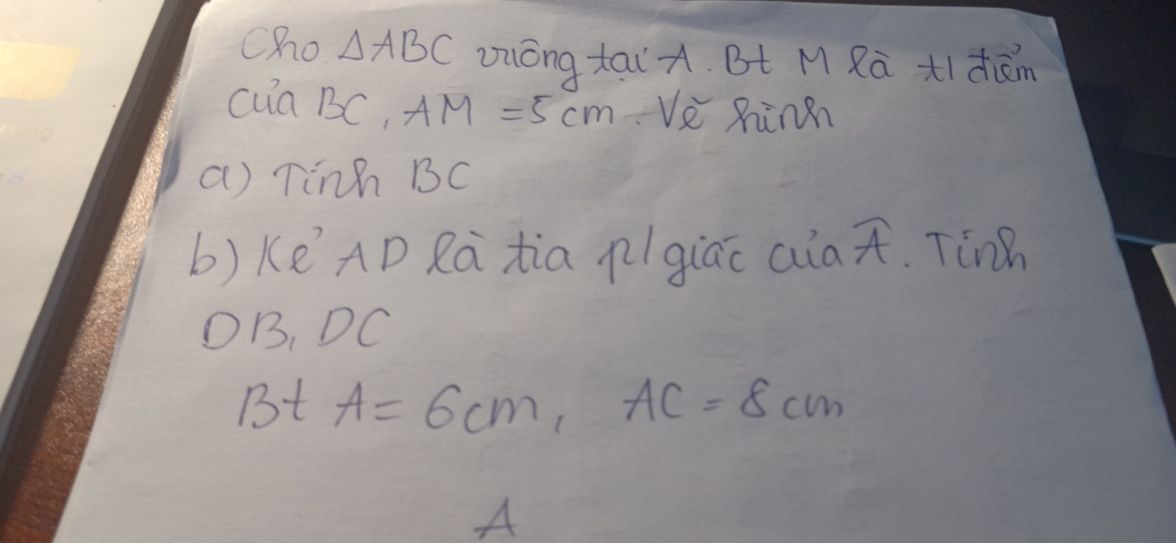 Cho ΔABC vuông tại A. Bt M là t/điểm
của BC, AM = 5cm. Vẽ hình
a) Tính BC
b) Kẻ AD là tia p/giác của Â. Tính
DB, DC
Bt A = 6cm, AC = 8cm
A